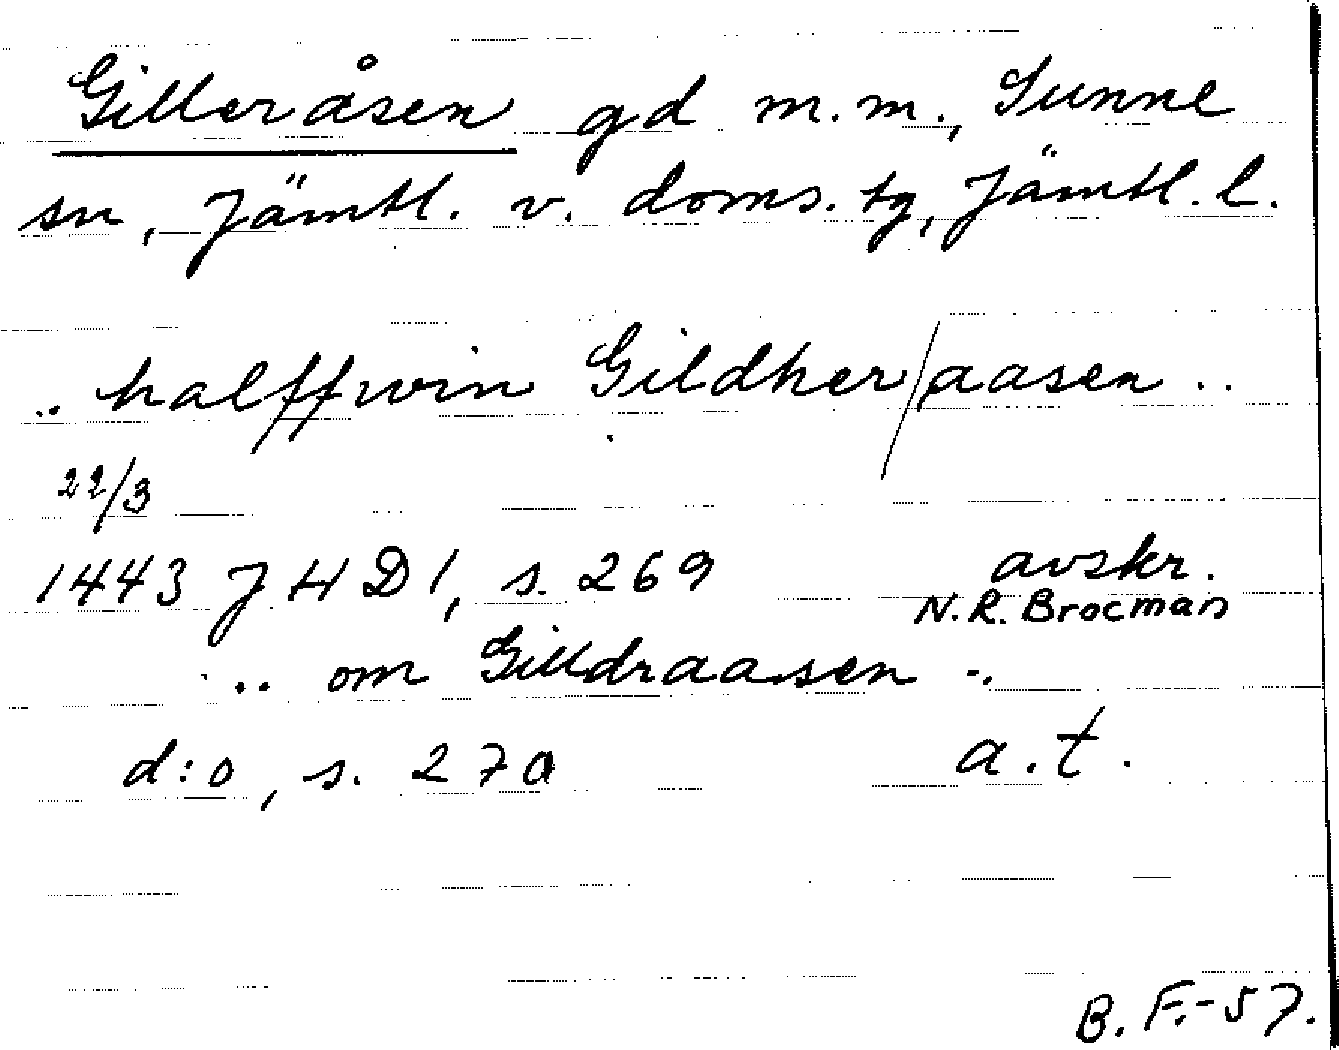 Gilleråsen gd m.m., Sunne
sn, Jämtl. v. doms. tg, Jämtl. l.
.. halffwin Gildher/aasen ..
22/3
1443 JHD1, s. 269 avskr.
N.R. Brocman
.. om Gilldraasen ..
d:o, s. 270 a.t.
B.F.-57.